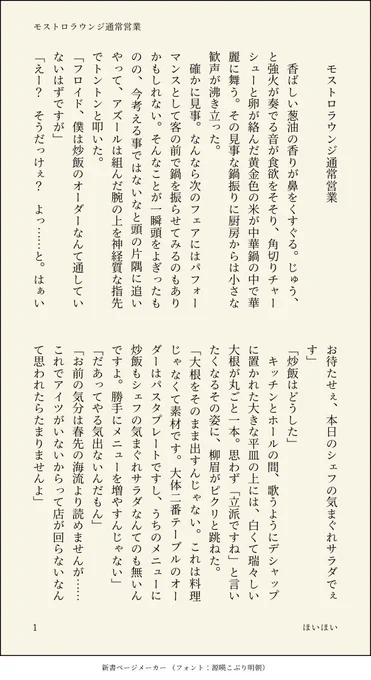 モストロラウンジ通常営業
モストロラウンジ通常営業
香ばしい葱油の香りが鼻をくすぐる。じゅう、
と強火が奏でる音が食欲をそそり、角切りチャー
シューと卵が絡んだ黄金色の米が中華鍋の中で華
麗に舞う。その見事な鍋振りに厨房からは小さな
歓声が沸き立った。
確かに見事。なんなら次のフェアにはパフォー
マンスとして客の前で鍋を振らせてみるのもあり
かもしれない。そんなことが一瞬頭をよぎったも
のの、今考える事ではないなと頭の片隅に追い
やって、アズールは組んだ腕の上を神経質な指先
でトントンと叩いた。
「フロイド、僕は炒飯のオーダーなんて通してい
ないはずですが」
「えー？　そうだっけぇ？　よっ……と。はぁい
お待たせぇ、本日のシェフの気まぐれサラダでぇ
す」
「炒飯はどうした」
キッチンとホールの間、歌うようにデシャップ
に置かれた大きな平皿の上には、白くて瑞々しい
大根が丸ごと一本。思わず「立派ですね」と言い
たくなるその姿に、柳眉がピクリと跳ねた。
「大根をそのまま出すんじゃない。これは料理
じゃなくて素材です。大体二番テーブルのオー
ダーはパスタプレートですし、うちのメニューに
炒飯もシェフの気まぐれサラダなんてのも無いん
ですよ。勝手にメニューを増やすんじゃない」
「だあってやる気出ないんだもん」
「お前の気分は春先の海流より読めませんが……
これでアイツがいないからって店が回らないなん
て思われたらたまりませんよ」
1
ほいほい
新書ページメーカー（フォント：源暎こぶり明朝）